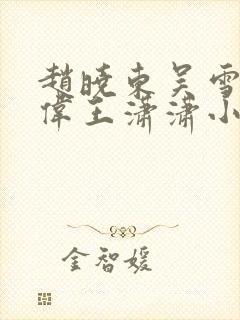 趙曉東吴雪
偉王瀟瀟小
金智媛